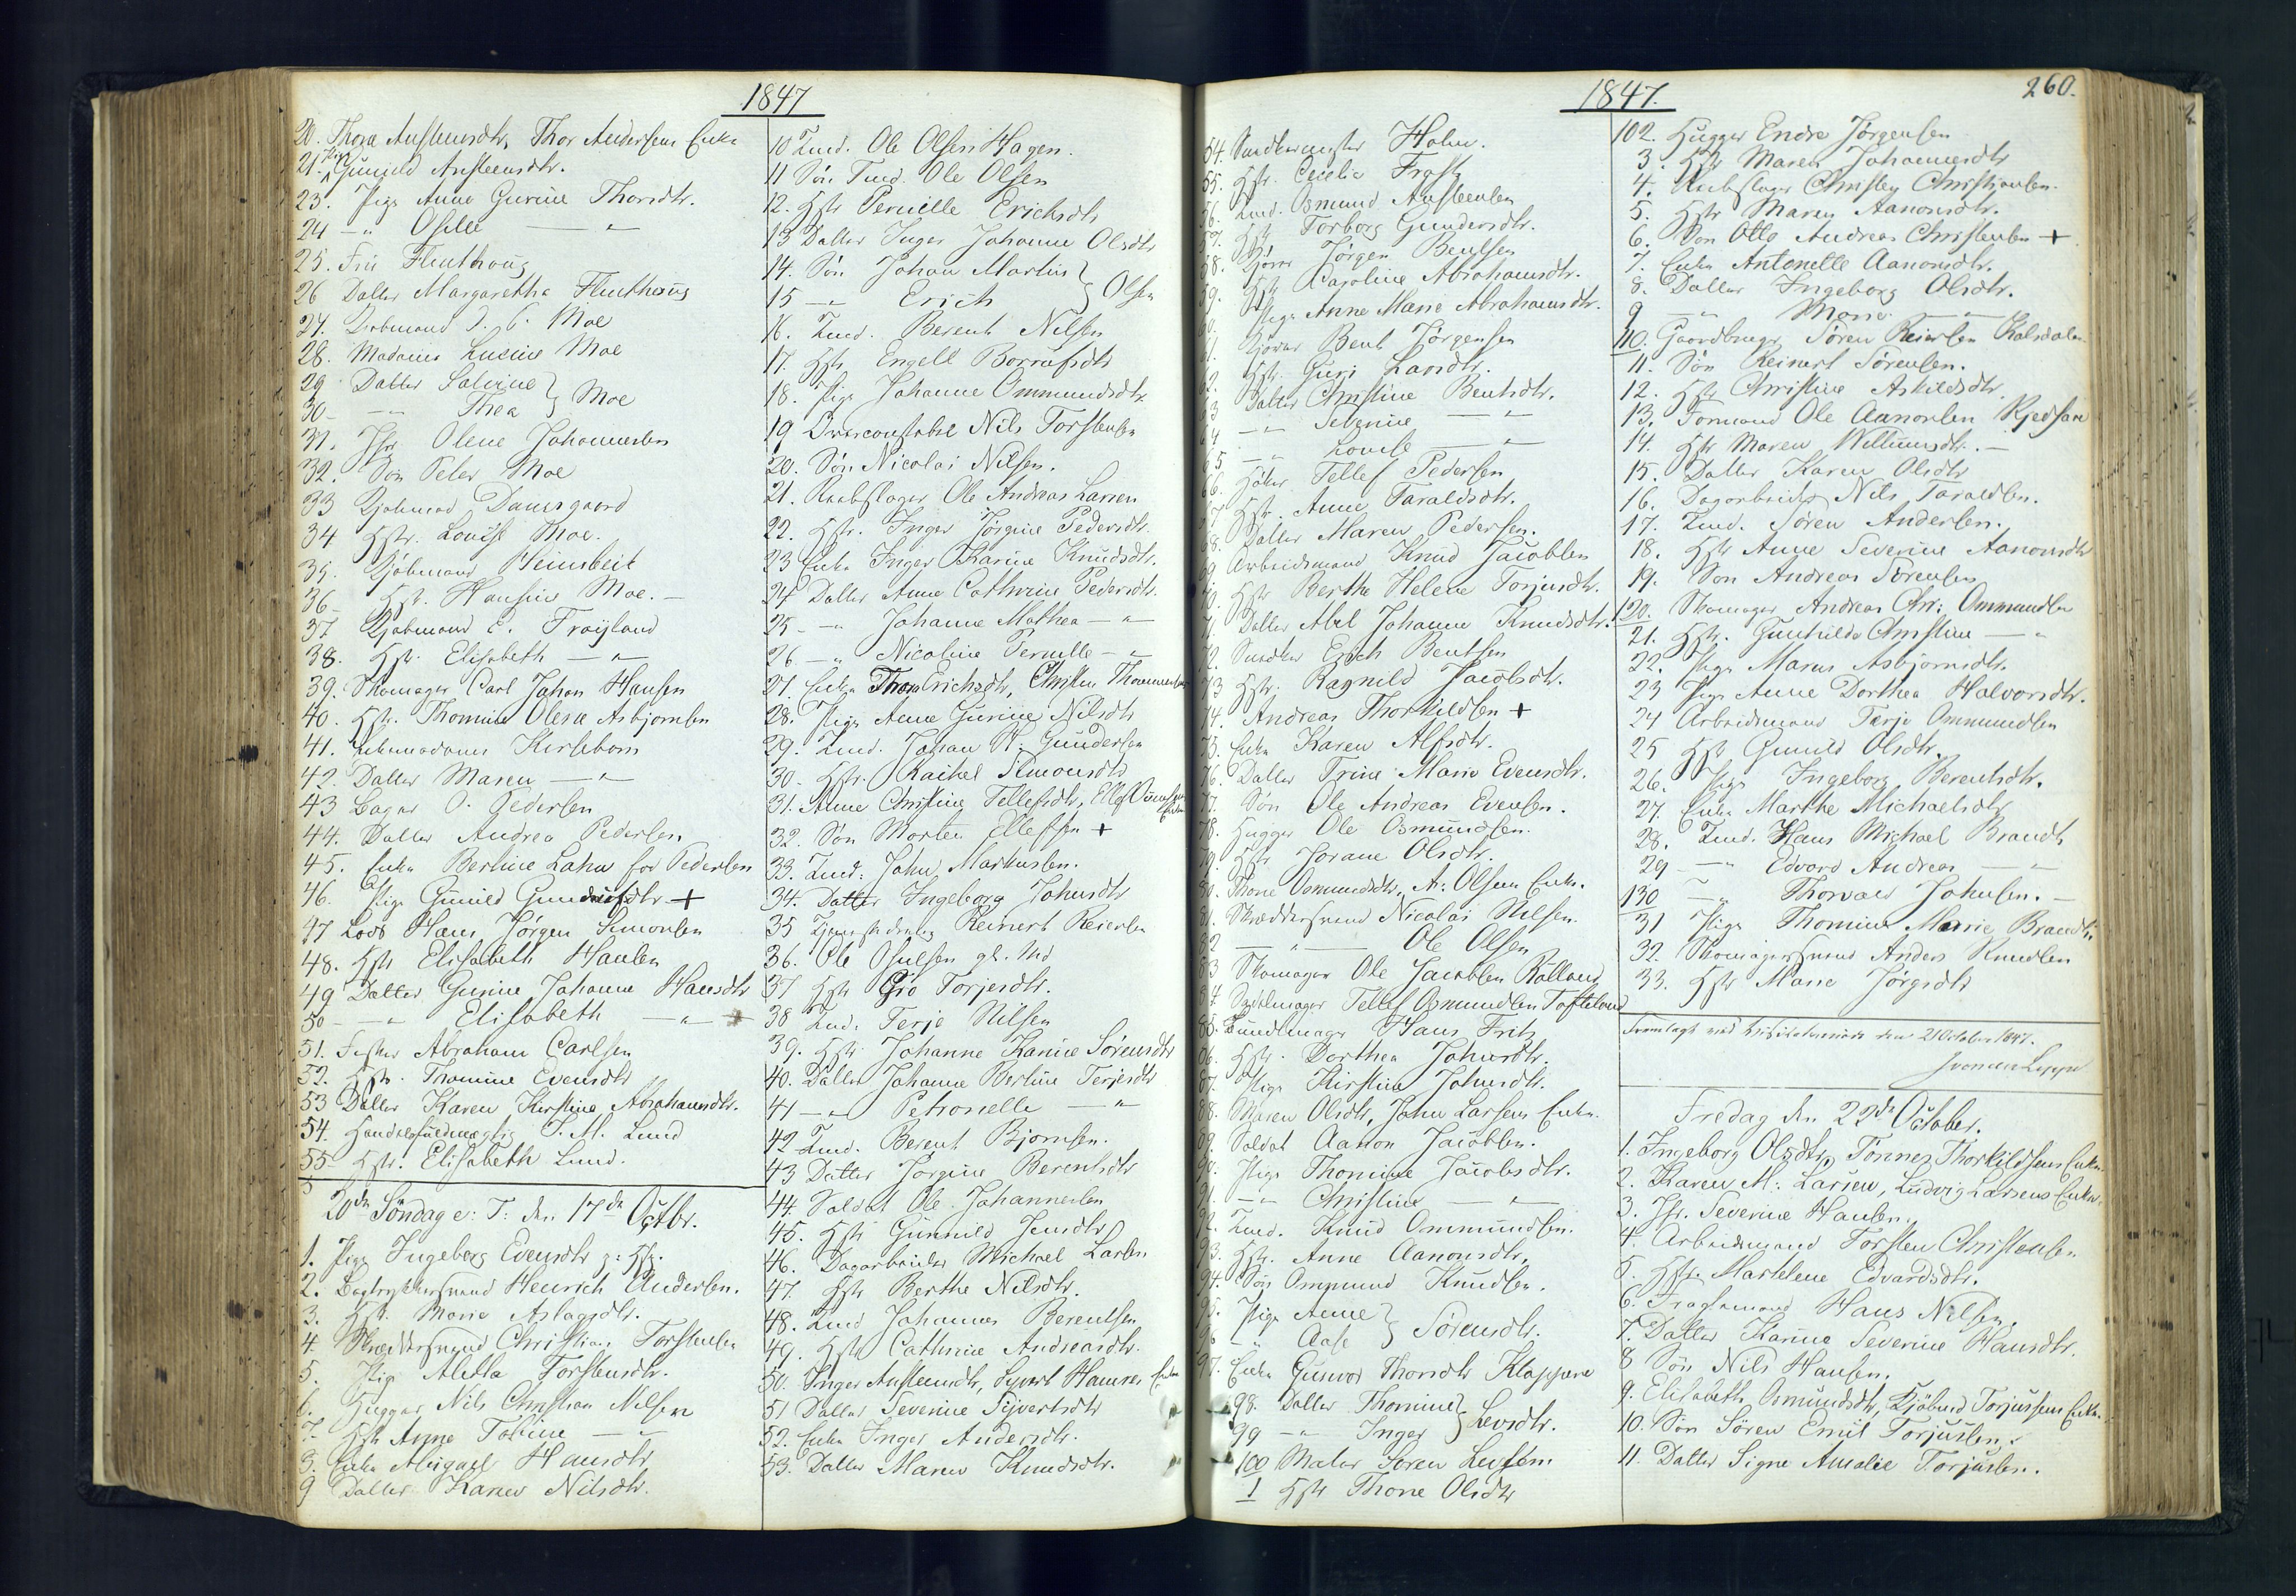 1847
20. Thora Anstensdtr, Thor Andersens Enke
21. Pige Gunild Anstensdtr.
23. Pige Anne Gurine Thorsdtr.
24 — " Oselle — " —
25. Fru Flenthoug
26 Datter Margaretha Flinthoug
27. Kjøbmand Moe
28. Madame Lusine Moe
29 Datter Salvine } Moe
30 — " Thea
31. Jfr Olene Johannesen
32. Søn Peter Moe
33 Kjøbmd Danesgaard
34 Hstr. Louise Moe.
35. Kjøbmand Heinsbeit
36 Hstr. Hansine Moe. —
37 Kjøbmand E. Frøyland
38. Hstr. Elisabeth — " —
39. Skomager Carl Johan Hansen
40. Hstr. Thomine Olene Asbjørnsen
41. Kirsebom
42. Datter Maren — " —
43 Bager O. Pedersen
44. Datter Andrea Pedersen
45. Enke Bertine Lahn for Pedersen
46. Pige Gunild Gundersdtr +
47 Lods Hans Jørgen Simonsen
48. Hstr Elisabeth Hansen
49 Datter Gurine Johanne Hansdtr
50 — " Elisabeth — " —
51. Fisker Abraham Carlsen
52. Hstr. Thomine Evensdtr
53 Datter Karen Kirstine Abrahamsdtr.
54. Handelsfuldmægtig J. M. Lund
55 Hstr. Elisabeth Lund.
20de Søndag e: T: den 17de Octbr.
1. Pige Ingeborg Evensdtr
2. Bogtrykkersvend Henrich Andersen.
3. Hstr. Marie Aslagsdtr.
4. Skreddersvend Christian Torstensen
5. Pige Aletta Torstensdtr.
6. Hugger Nils Christian Nilsen
7. Hstr Anne Tobine — " —
8. Enke Abigael Hansdtr
9 Datter Karen Nilsdtr.
10 Tmd. Ole Olsen Hagen.
11 Søn Tmd. Ole Olsen
12. Hstr Pernille Erichsdtr
13 Datter Inger Johanne Olsdtr
14. Søn Johan Martin } Olsen
15 — " Erich
16. Tmd. Berent Nilsen
17. Hstr Engell
18. Pige Johanne Ommundsdtr
19 Overconstabel Nils Torstensen
20. Søn Nicolai Nilsen.
21. Reebslager Ole Andreas Larsen
22. Hstr. Inger Jørgine Pedersdtr.
23 Enke Inger Karine Knudsdtr.
24 Datter Anne Cathrine Pedersdtr.
25 — " Johanne Mathea — " —
26 — " Nicoline Pernille — "
27. Enke Thora Erichsdtr, Christen Thommesens
28. Pige Anne Gurine Nilsdtr
29. Tmd. Johan H. Gundersen
30. Hstr. Rachel Simonsdtr
31. Anne Christine Tellefsdtr, Ellef Enke
32. Søn Morten Ellefsen +
33. Tmd. John Markussen.
34. Datter Ingeborg Johnsdtr
35 Tjenestedreng Reinert Reiersen
36. Ole Osulsen gl. Md
37 Hstr Gro Torjersdtr.
38 Tmd. Terje Nilsen
39. Hstr. Johanne Karine Sørensdtr
40. Datter Johanne Bertine Terjesdtr
41 — " Petronelle — "
42 Tmd. Berent Bjørnsen.
43 Datter Jørgine Berentsdtr
44. Soldat Ole Johannesen
45. Hstr Gunnild Jensdtr
46. Dagarbeider Michael Larsen
47. Hstr Berthe Nilsdtr.
48. Tmd Johannes Berentsen
49. Hstr Cathrine Andreasdtr.
50. Inger Anstensdtr, Sivert Hansens Enke
51 Datter Severine Sivertsdtr
52. Enke Inger Andersdtr.
53. Datter Maren Knudsdtr.
1847.
260.
54. Snedkermester Holm.
55. Hstr. Cecilie
56. Tmd. Osmund Anstensen
57. Hstr Torborg Gundersdtr.
58. Kjører Jørgen Bentsen
59. Hstr Caroline Abrahamsdtr.
Pige Anne Marie Abrahamsdtr.
61. Kjører Bent Jørgensen
Hstr. Guri Larsdtr.
62. Datter Christine Bentsdtr.
63 — " Severine — "
64 — " Louise — "
65. Høker Tellef Pedersen
66. Hstr. Anne Taraldsdtr.
Datter Maren Pedersen.
69 Arbeidsmand Knud Jacobsen
70. Hstr Berthe Helene Torjusdtr.
71. Datter Abel Johanne Knudsdtr.
72. Snedker Erich Bentsen
73 Hstr. Ragnild Jacobsdtr.
74. Andreas Thorkildsen +
75. Enke Karen Alfsdtr.
76. Datter Trine Marie Evensdtr.
77. Søn Ole Andreas Evensen.
78. Hugger Ole Osmundsen.
79. Hstr Jorane Olsdtr.
80. Thone Osmundsdtr, A: Olsens Enke.
81. Skreddersvend Nicolai Nilsen.
82 — " — Ole Olsen
83 Skomager Ole Jacobsen Rolland
84 Sadelmager Tellef Osmundsen Tofteland
85. Bundtmager Hans Fritz
86. Hstr. Dorthea Johnsdtr.
87. Pige Kirstine Johnsdtr.
88. Maren Olsdtr, John Larsens Enke.
89. Soldat Aanon Jacobsen.
90. Pige Thomine Jacobsdtr.
91. — " Christine — " —
92. Tmd. Knud Ommundsen.
93. Hstr. Anne Aanonsdtr.
94. Søn Ommund Knudsen.
95. Pige Anne } Sørensdtr.
96 — " Aase
97. Enke Gunvor Thorsdtr Kloppene
98. Datter Thomine } Levsdtr.
99 — " Inger
100 Maler Søren Levsen
1 Hstr Thone Olsdtr
102. Hugger Endre Jørgensen
3. Hstr Maren Johannesdtr
4. Reebslager Christen Christiansen.
5. Hstr Maren Aanonsdtr.
6. Søn Otto Andreas Christensen +
7. Enke Antonette Aanonsdtr.
8. Datter Ingeborg Olsdtr.
9 — " Marie — " —
110. Gaardbruger Søren Reiersen Kalsdalen
11. Søn Reinert Sørensen.
12. Hstr Christine Askildsdtr
13. Formand Ole Aanonsen
14. Hstr Maren Willumsdtr. —
15. Datter Karen Olsdtr
16. Dagarbeider Nils Taraldsen.
17. Tmd. Søren Andersen.
18. Hstr Anne Severine Aanonsdtr
19. Søn Andreas Sørensen
120. Skomager Andreas Chr: Ommundsen
21. Hstr. Gunhilde Christine — "
22. Pige Maren Asbjørnsdtr.
23 Pige Anne Dorthea Halvorsdtr.
24 Arbeidsmand Terje Ommundsen
25 Hstr Gunild Olsdtr.
26. Pige Ingeborg Berentsdtr.
27. Enke Marthe Michaelsdtr
28. Tmd. Hans Michael Brandt
29 — " Edvard Andreas — "
130 — " Thorvald Johnsen. —
31 Pige Thomine Marie Brandt
32. Skomagersvend Anders Knudsen
33. Hstr Marie Jørgsdtr
Fremlagt ved Visitatsen den 21 October 1847.
Fredag den 22de October.
1. Ingeborg Olsdtr, Tønnes Thorkildsens Enke
2. Karen M: Larsen, Ludvig Larsens Enke.
3. Jfr. Severine Hansen.
4. Arbeidsmand Torsten Christensen
5. Hstr. Martelene Edvardsdtr.
6. Fragtemand Hans Nilsen.
7. Datter Karine Severine Hansdtr.
8 Søn Nils Hansen.
9. Elisabeth Osmundsdtr, Kjøbmd Torjussens Enke.
10. Søn Søren Emil Torjussen.
11. Datter Signe Amalie Torjussen.